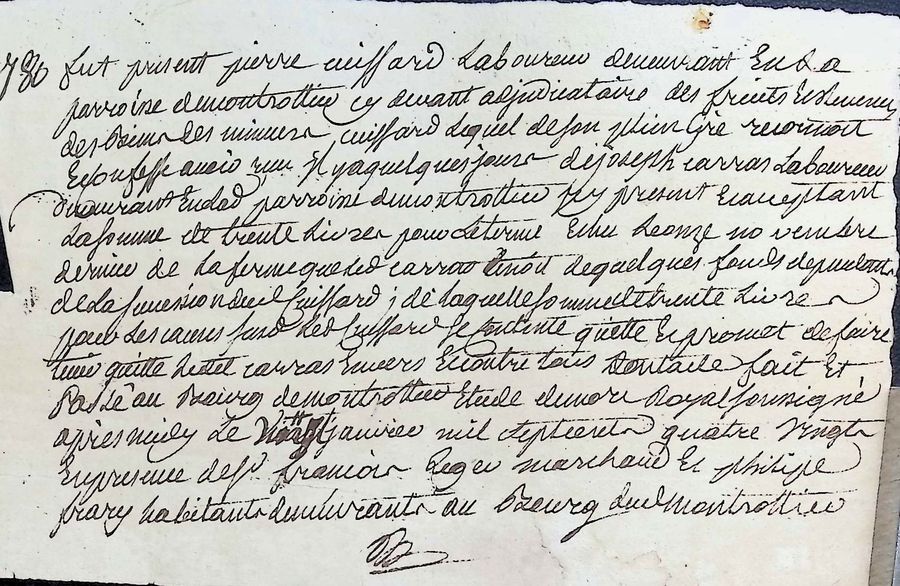 1780 fut present pierre cuissard Laboureur demeurant En La
parroisse demontrottier cy devant adjudicataire des fruits Et Revenus
des Biens des mineurs cuissard Lequel de son plein Gré reconnoit
Et confesse avoir reçu il y a quelques jours de joseph carras Laboureur
demeurant En lad parroisse demontrottier icy present Et acceptant
La somme de trente Livres pour Le terme Echu Le onze novembre
dernier de La ferme que led carras tenoit de quelques fonds dependants
de La succession dud Cuissard ; de laquelle somme de trente Livres
pour Les causes susd led Cuissard se Contente quitte Et promet de faire
tenir quitte Ledit carras Envers Et contre tous Dont acte fait Et
Passé au Bourg demontrottier Etude du nore Royal soussigné
après midy Le vingt janvier mil sept cent quatre vingt
En presence de Sr françois Leger marchand Et philipe
prary habitants demeurants au Bourg dud montrottier